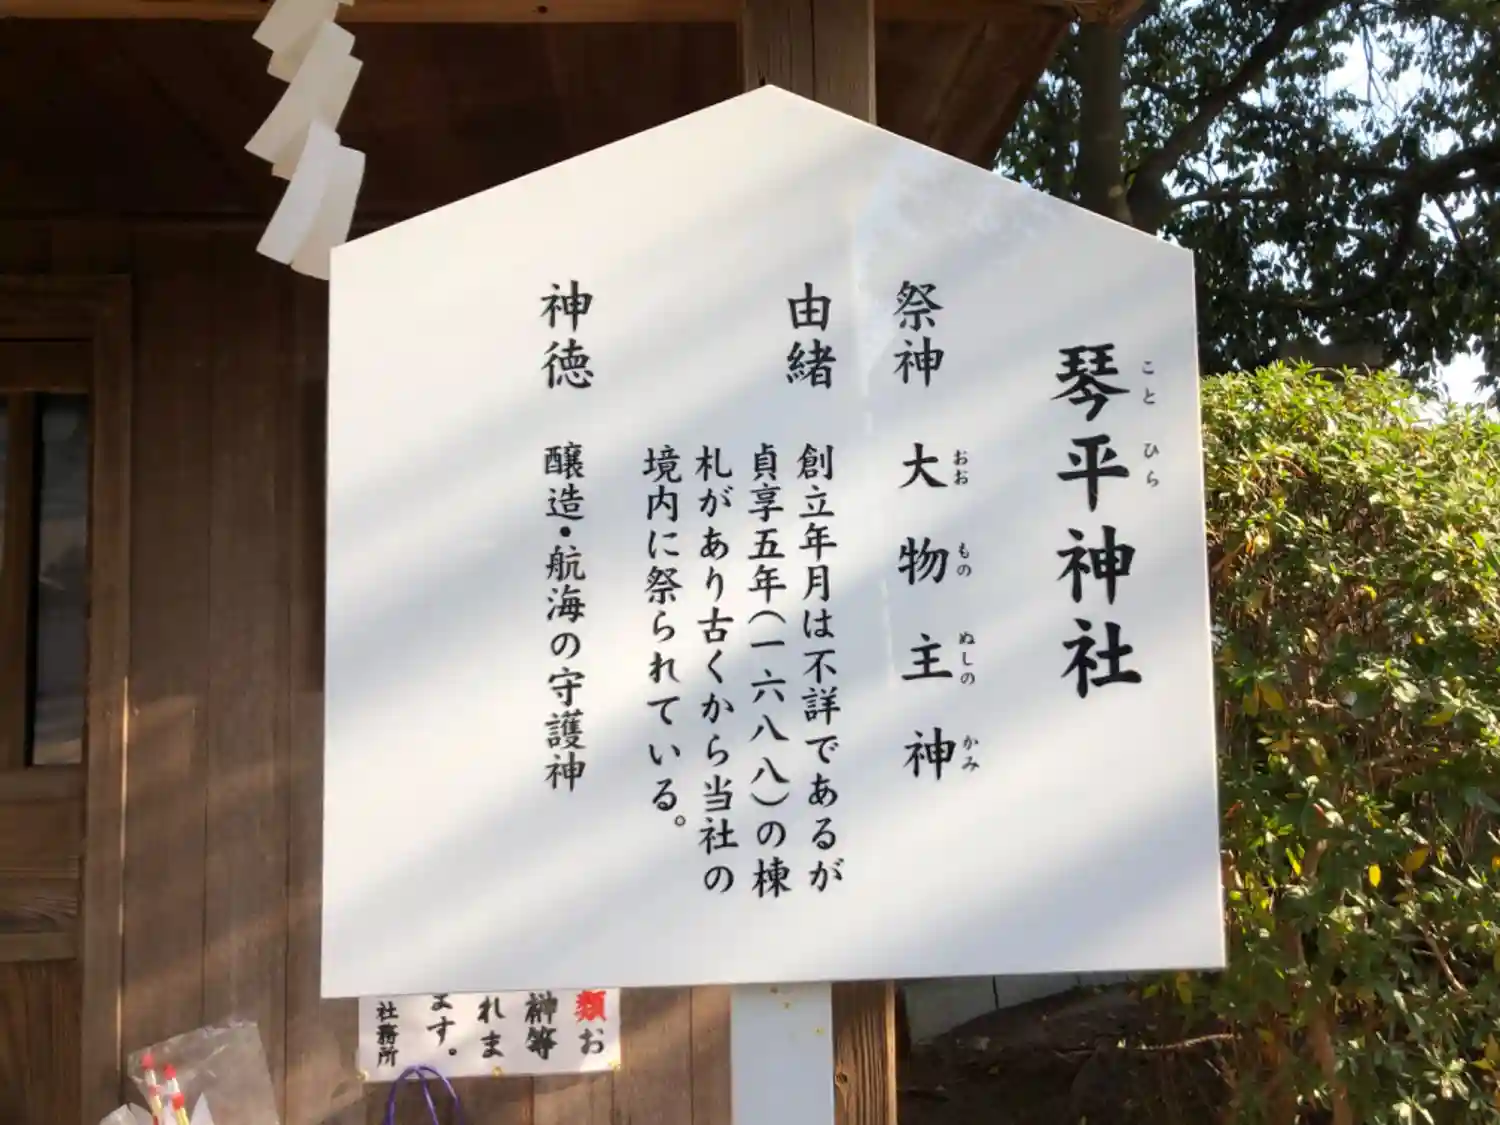 琴平神社
こと ひら
祭神 大物主神
おお もの ぬしの かみ
由緒 創立年月は不詳であるが
貞享五年(一六八八)の棟
札があり古くから当社の
境内に祭られている。
神徳 醸造・航海の守護神
類お
榊等
れま
ます。
社務所